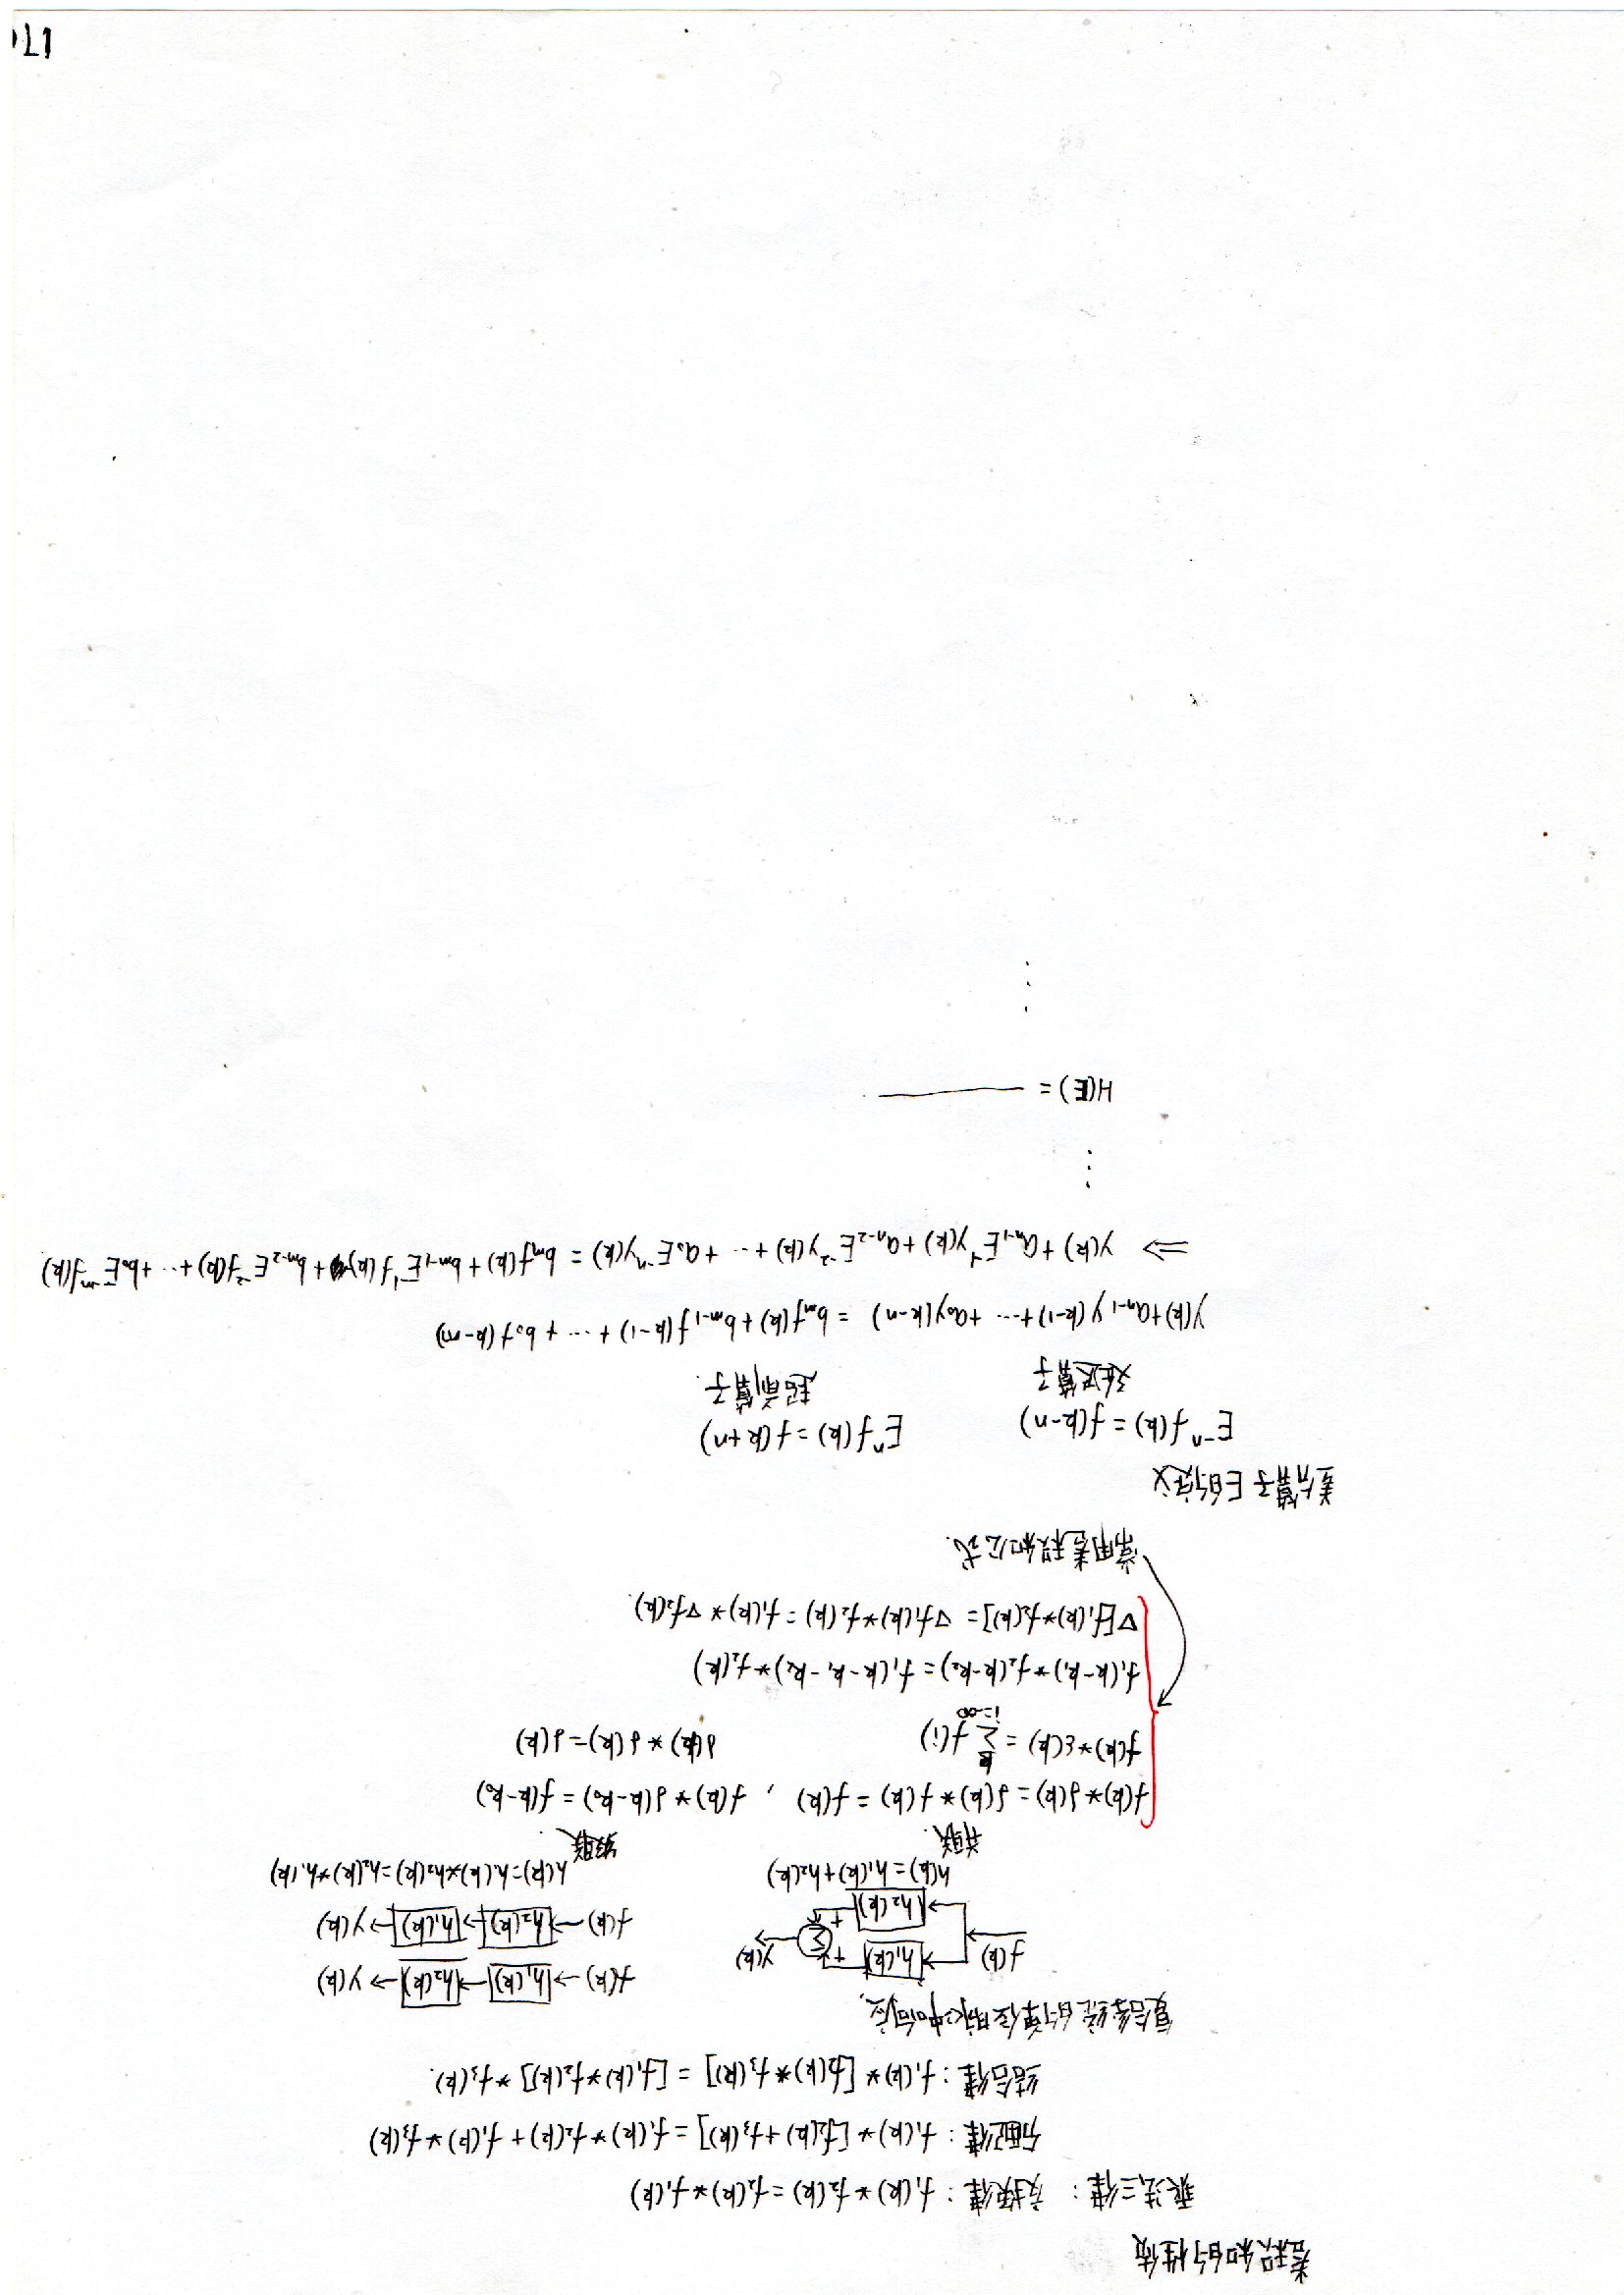 卷积和的性质
乘法三律： 交换律：f₁(k)*f₂(k)=f₂(k)*f₁(k)
分配律：f₁(k)*[f₂(k)+f₃(k)]=f₁(k)*f₂(k)+f₁(k)*f₃(k)
结合律：f₁(k)*[f₂(k)*f₃(k)]=[f₁(k)*f₂(k)]*f₃(k).
复合系统的单位脉冲响应.
f(k) h₁(k) + Σ y(k) f(k)→h₁(k)→h₂(k)→y(k)
h₂(k) + f(k)→h₂(k)→h₁(k)→y(k)
h(k)=h₁(k)+h₂(k) h(k)=h₁(k)*h₂(k)=h₂(k)*h₁(k)
并联. 级联.
f(k)*δ(k)=δ(k)*f(k)=f(k) , f(k)*δ(k-k₀)=f(k-k₀)
f(k)*ε(k)=∑_{i=-∞}^{k} f(i) δ(k)*δ(k)=δ(k)
f₁(k-k₁)*f₂(k-k₂)=f₁(k-k₁-k₂)*f₂(k)
∇[f₁(k)*f₂(k)]=∇f₁(k)*f₂(k)=f₁(k)*∇f₂(k).
常用卷积和公式.
差分算子E的定义
E⁻ⁿf(k)=f(k-n) Eⁿf(k)=f(k+n)
延迟算子 超前算子.
y(k)+aₙ₋₁y(k-1)+…+a₀y(k-n) = bₘf(k)+bₘ₋₁f(k-1)+…+b₀f(k-m)
⇒ y(k)+aₙ₋₁E⁻¹y(k)+aₙ₋₂E⁻²y(k)+…+a₀E⁻ⁿy(k)=bₘf(k)+bₘ₋₁E⁻¹f(k)+bₘ₋₂E⁻²f(k)+…+b₀E⁻ᵐf(k)
⋮
H(E) = ———
⋮